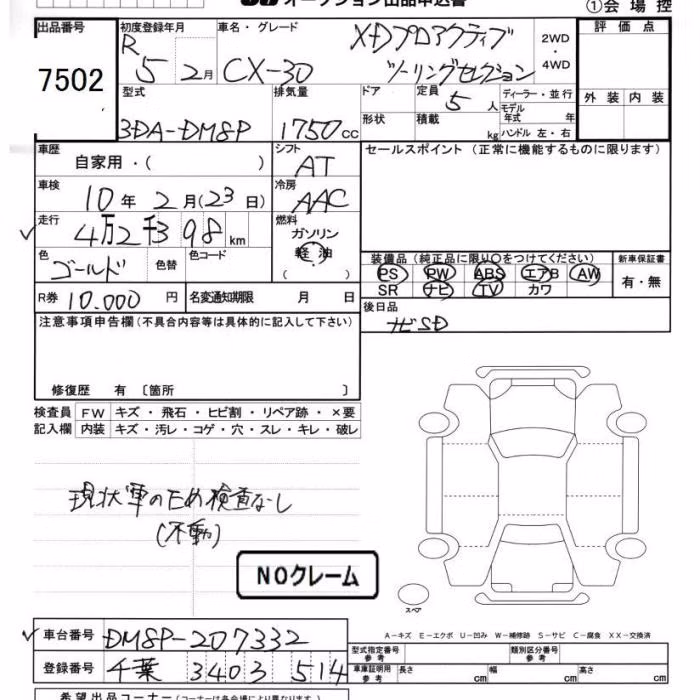 オークション出品申込書
①会場控
出品番号 7502
初度登録年月 R 5 2月
車名・グレード CX-30 XDプロアクティブ ツーリングセレクション
2WD・4WD
評価点
外装 内装
型式 3DA-DM8P
排気量 1750cc
ドア
形状
定員 5人
積載 kg
ディーラー・並行
モデル年式 年
ハンドル 左・右
車歴 自家用・( )
シフト AT
セールスポイント(正常に機能するものに限ります)
車検 10年 2月(23日)
冷房 AAC
走行 4万2千398km
燃料 ガソリン 軽油 ( )
色 ゴールド 色替
色コード
装備品(純正品に限り○をつけてください)
PS PW ABS エアB AW
SR ナビ TV カワ
新車保証書
有・無
R券 10.000円
名変通知期限 月 日
後日品
ナビSD
注意事項申告欄(不具合内容等は具体的に記入して下さい)
修復歴 有〔箇所 〕
検査員 FW キズ・飛石・ヒビ割・リペア跡・×要
記入欄 内装 キズ・汚レ・コゲ・穴・スレ・キレ・破レ
現状車のため検査なし
(不動)
NOクレーム
スペア
A-キズ E-エクボ U-凹み W-補修跡 S-サビ C-腐食 XX-交換済
車台番号 DM8P-207332
登録番号 千葉 3403 514
型式指定番号 参考
類別区分番号 参考
車庫証明用 参考 長さ cm 幅 cm 高さ cm
希望出品コーナー(コーナーは各会場により異なります。)